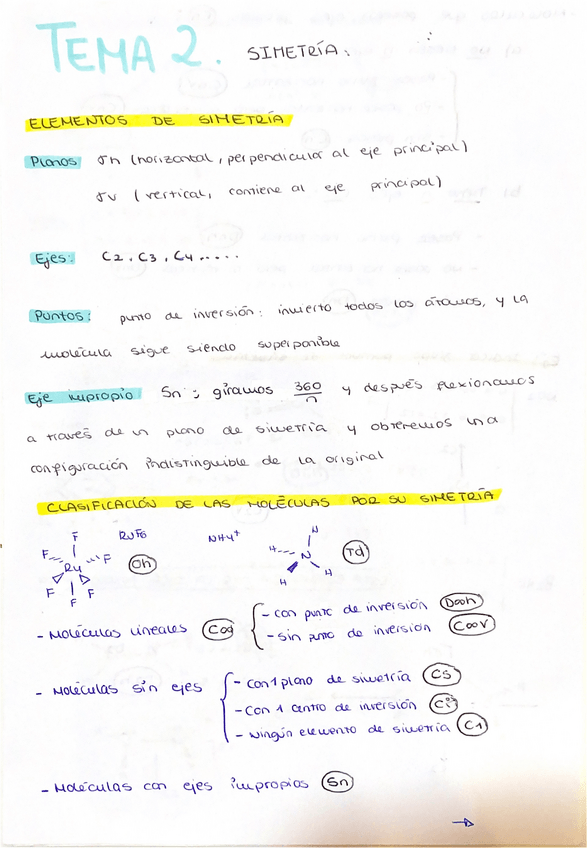 TEMA 2. SIMETRÍA.
ELEMENTOS DE SIMETRÍA
Planos σh (horizontal, perpendicular al eje principal)
σv (vertical, contiene al eje principal)
Ejes: C2, C3, C4.....
Puntos: punto de inversión: invierto todos los átomos, y la
molécula sigue siendo superponible
Eje impropio Sn; giramos 360/n y después flexionamos
a través de un plano de simetría y obtenemos una
configuración indistinguible de la original
CLASIFICACIÓN DE LAS MOLÉCULAS POR SU SIMETRÍA
RuF6 NH4+
F F F Ru F F F Oh
H H N H H Td
- Moléculas lineales
- con punto de inversión D∞h
- sin punto de inversión C∞v
- Moléculas sin ejes
- Con 1 plano de simetría Cs
- Con 1 centro de inversión
- Ningún elemento de simetría C1
- Moléculas con ejes impropios Sn
→